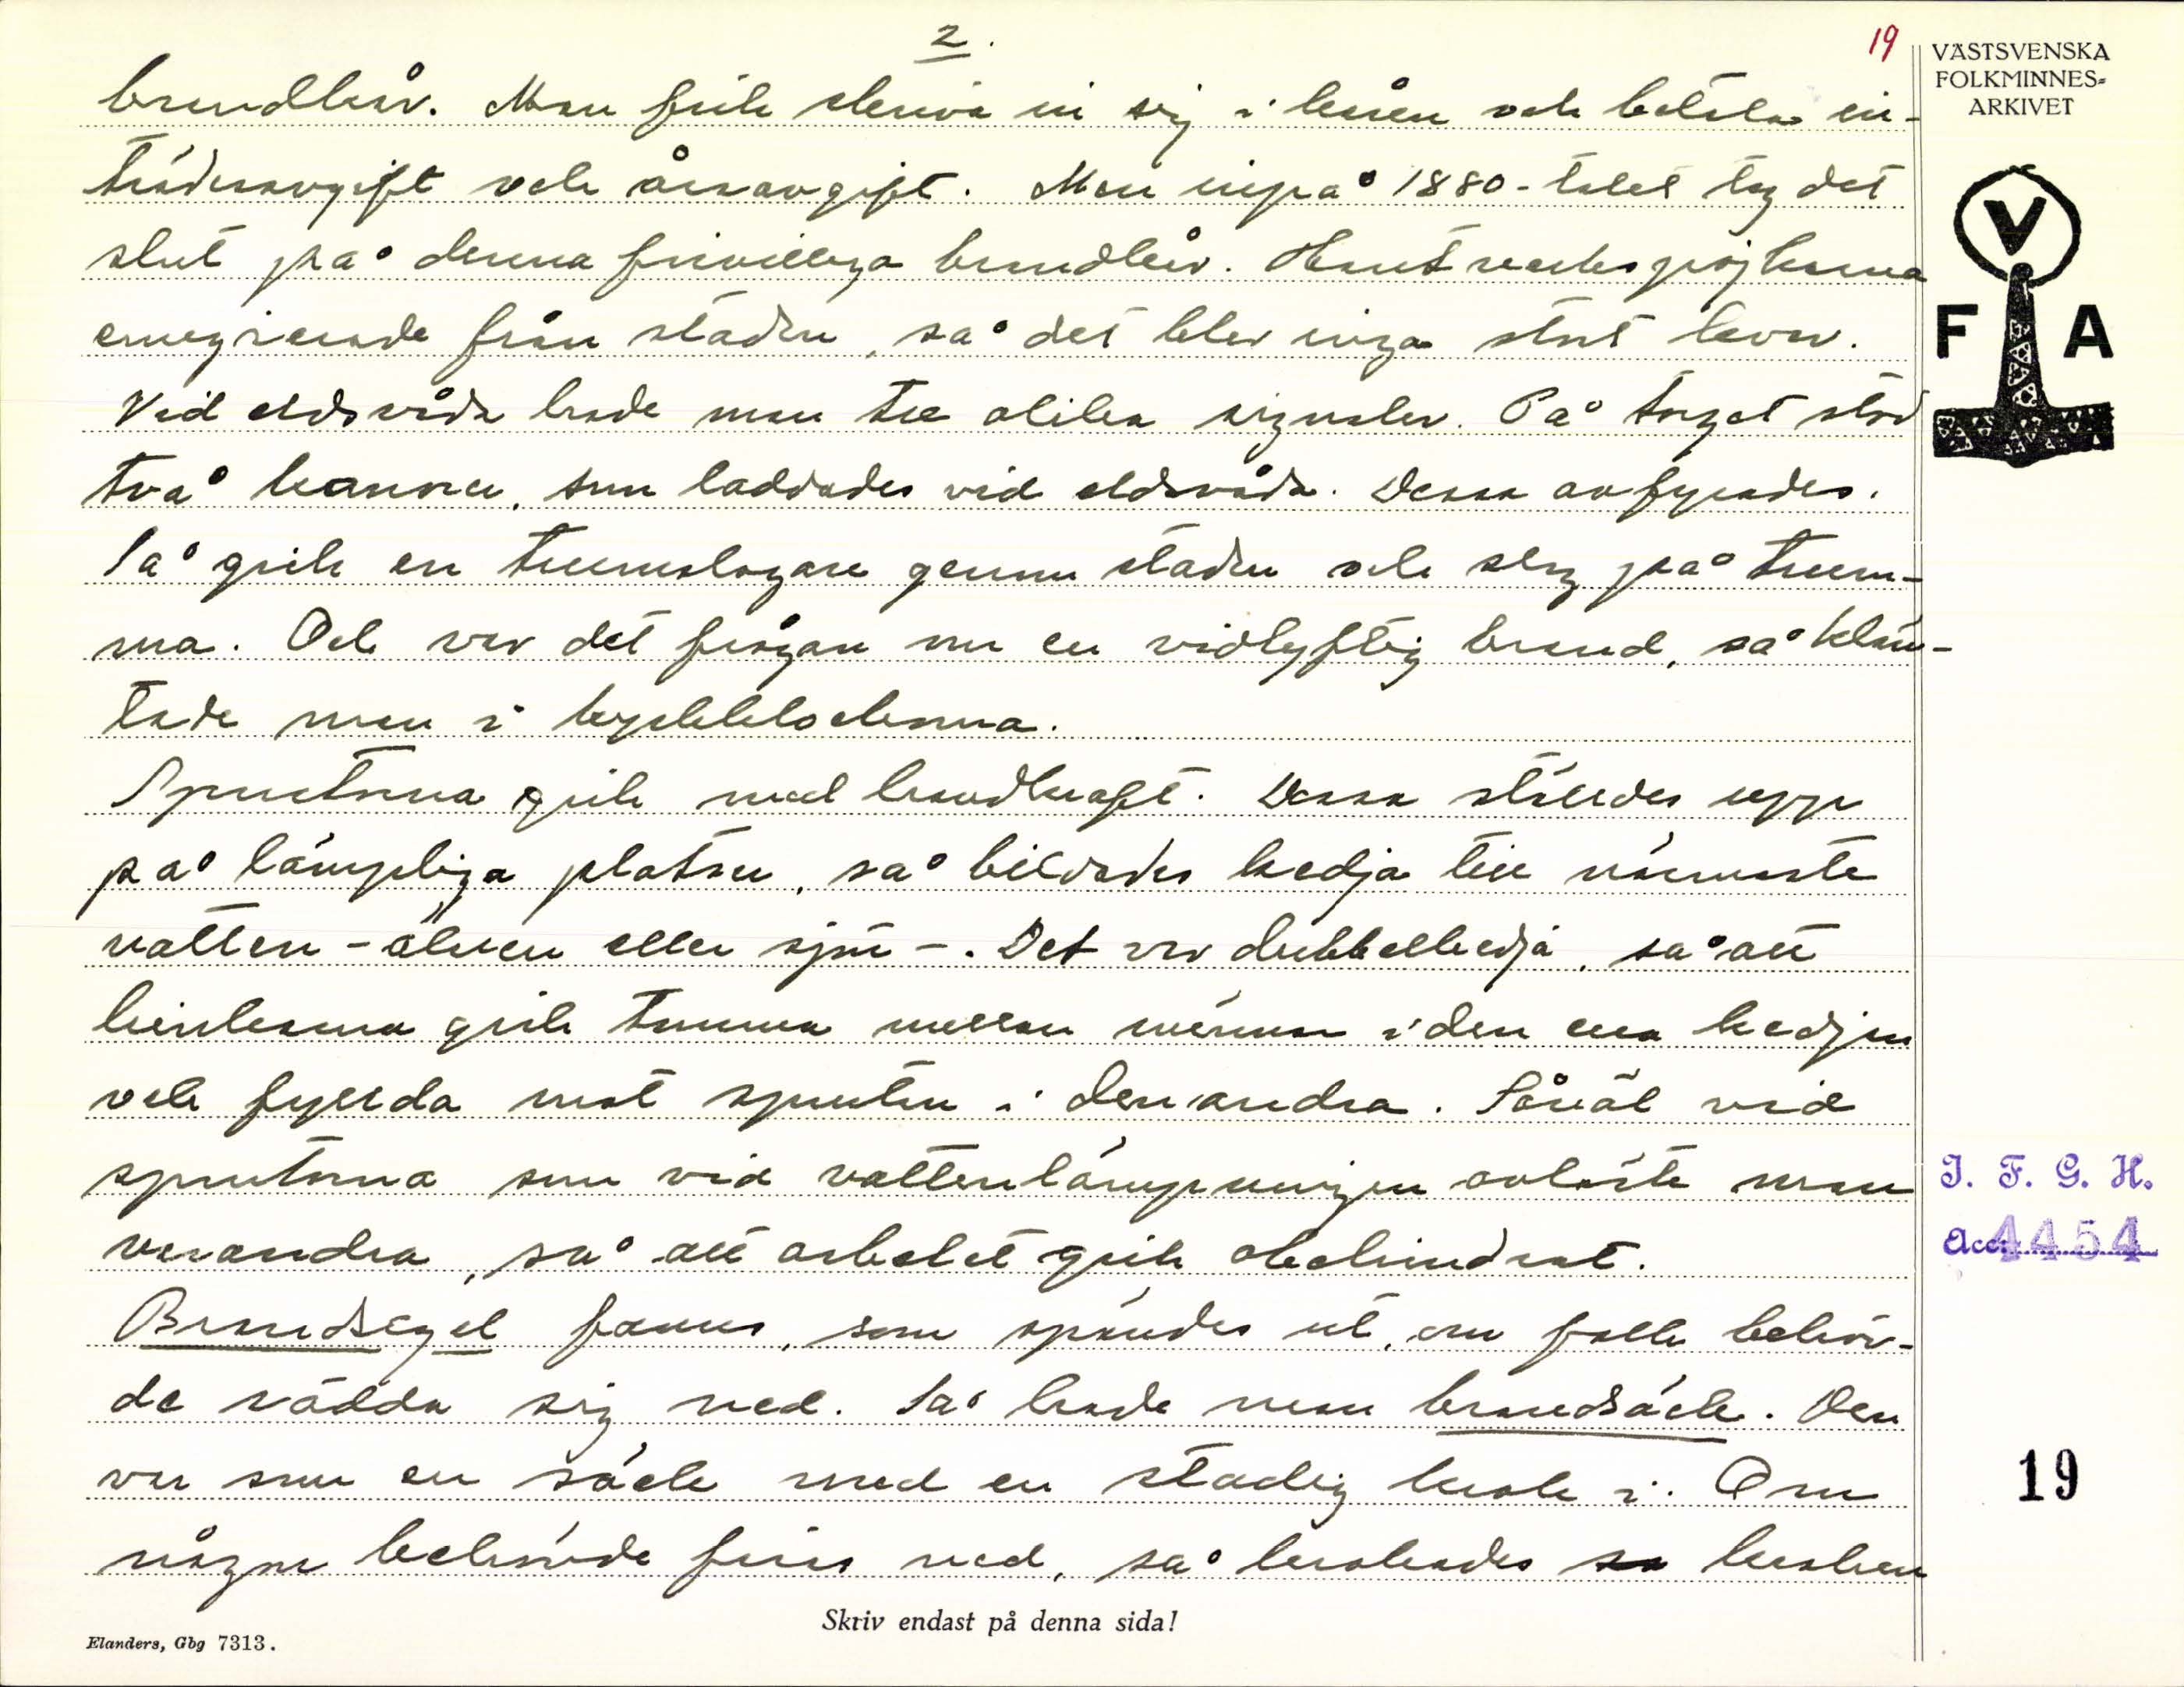 2.
19
brandkår. Man fick skriva in sig i kåren och betala in-
trädesavgift och årsavgift. Men inpå 1880-talet tog det
slut på denna frivilliga brandkår. Hantverkspojkarna
emigrerade från staden, så det blev inga stort kvar.
Vid eldsvåda hade man tre olika signaler. På torget stod
två kanoner, som laddades vid eldsvåda. Dessa avfyrades.
Så gick en trumslagare genom staden och slog på trum-
ma. Och var det frågan om en vidlyftig brand, så kläm-
tade man i kyrkklockorna.
Sprutorna gick med handkraft. Dessa ställdes upp
på lämpliga platser, så bildades kedja till närmaste
vatten - älven eller sjön -. Det var dubbelkedja, så att
hinkarna gick tomma mellan männen i den ena kedjan
och fyllda mot sprutan i den andra. Såväl vid
sprutorna som vid vattenlämpningen avlöste man
varandra, så att arbetet gick obehindrat.
Brandsegel fanns, som spändes ut, om folk behöv-
de rädda sig ned. Så hade man brandsäck. Den
var som en säck med en stadig krok i. Om
någon behövde firas ned, så krokades kroken
VÄSTSVENSKA
FOLKMINNES=
ARKIVET
V
F A
I. F. G. H.
Acc: 4454
19
Skriv endast på denna sida!
Elanders, Gbg 7313.